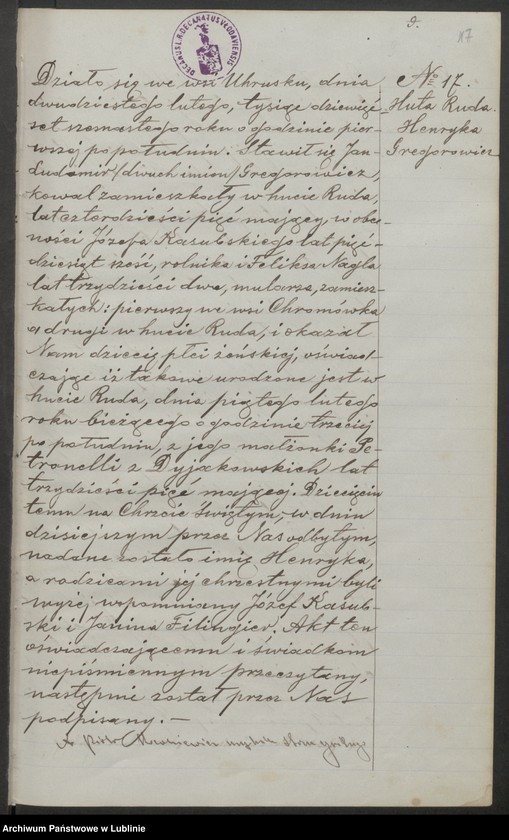 9.
117
DECANUS L.R. DECANATUS VLODAVIENSIS
№ 17.
Huta Ruda.
Henryka
Gregorowicz
Działo się we wsi Uhrusku, dnia
dwudziestego lutego, tysiąc dziewięć-
set szesnastego roku o godzinie pier-
wszej po południu. Stawił się Jan-
Ludomir /dwuch imion/ Gregorowicz,
kowal zamieszkały w hucie Ruda,
lat czterdzieści pięć mający, w obec-
ności Józefa Kasubskiego lat pięć-
dziesiąt sześć, rolnika i Feliksa Nagla
lat trzydzieści dwa, mularza, zamiesz-
kałych: pierwszy we wsi Chromówka
a drugi w hucie Ruda, i okazał
Nam dziecię płci żeńskiej, oświad-
czając iż takowe urodzone jest w
hucie Ruda, dnia piątego lutego
roku bieżącego o godzinie trzeciej
po południu, z jego małżonki Pe-
tronelli z Dyjakowskich lat
trzydzieści pięć mającej. Dziecięciu
temu na Chrzcie Świętym, w dniu
dzisiejszym przez Nas odbytym,
nadane zostało imię Henryka,
a rodzicami jej chrzestnymi byli
wyżej wspomniany Józef Kasub-
ski i Janina Filingier. Akt ten
oświadczającemu i świadkom
niepiśmiennym przeczytany,
następnie został przez Nas
podpisany. —
X. Piotr
Archiwum Państwowe w Lublinie